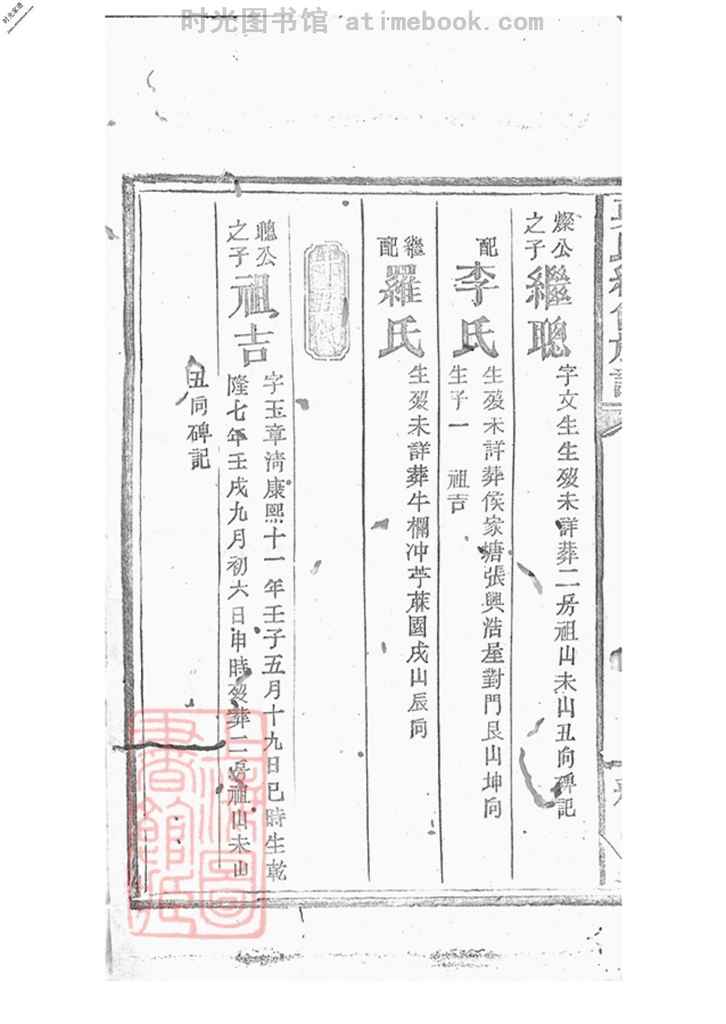 时光图书馆 atimebook.com
燦公之子
繼聰
字文生生歿未詳葬二房祖山未山丑向碑記
配
李氏
生歿未詳葬侯家塘張興浩屋對門艮山坤向
生子一 祖吉
繼配
羅氏
生歿未詳葬牛欄冲苧蔴園戌山辰向
聰公之子
祖吉
字玉章清康熙十一年壬子五月十九日巳時生乾
隆七年壬戌九月初六日申時歿葬二房祖山未山
丑向碑記